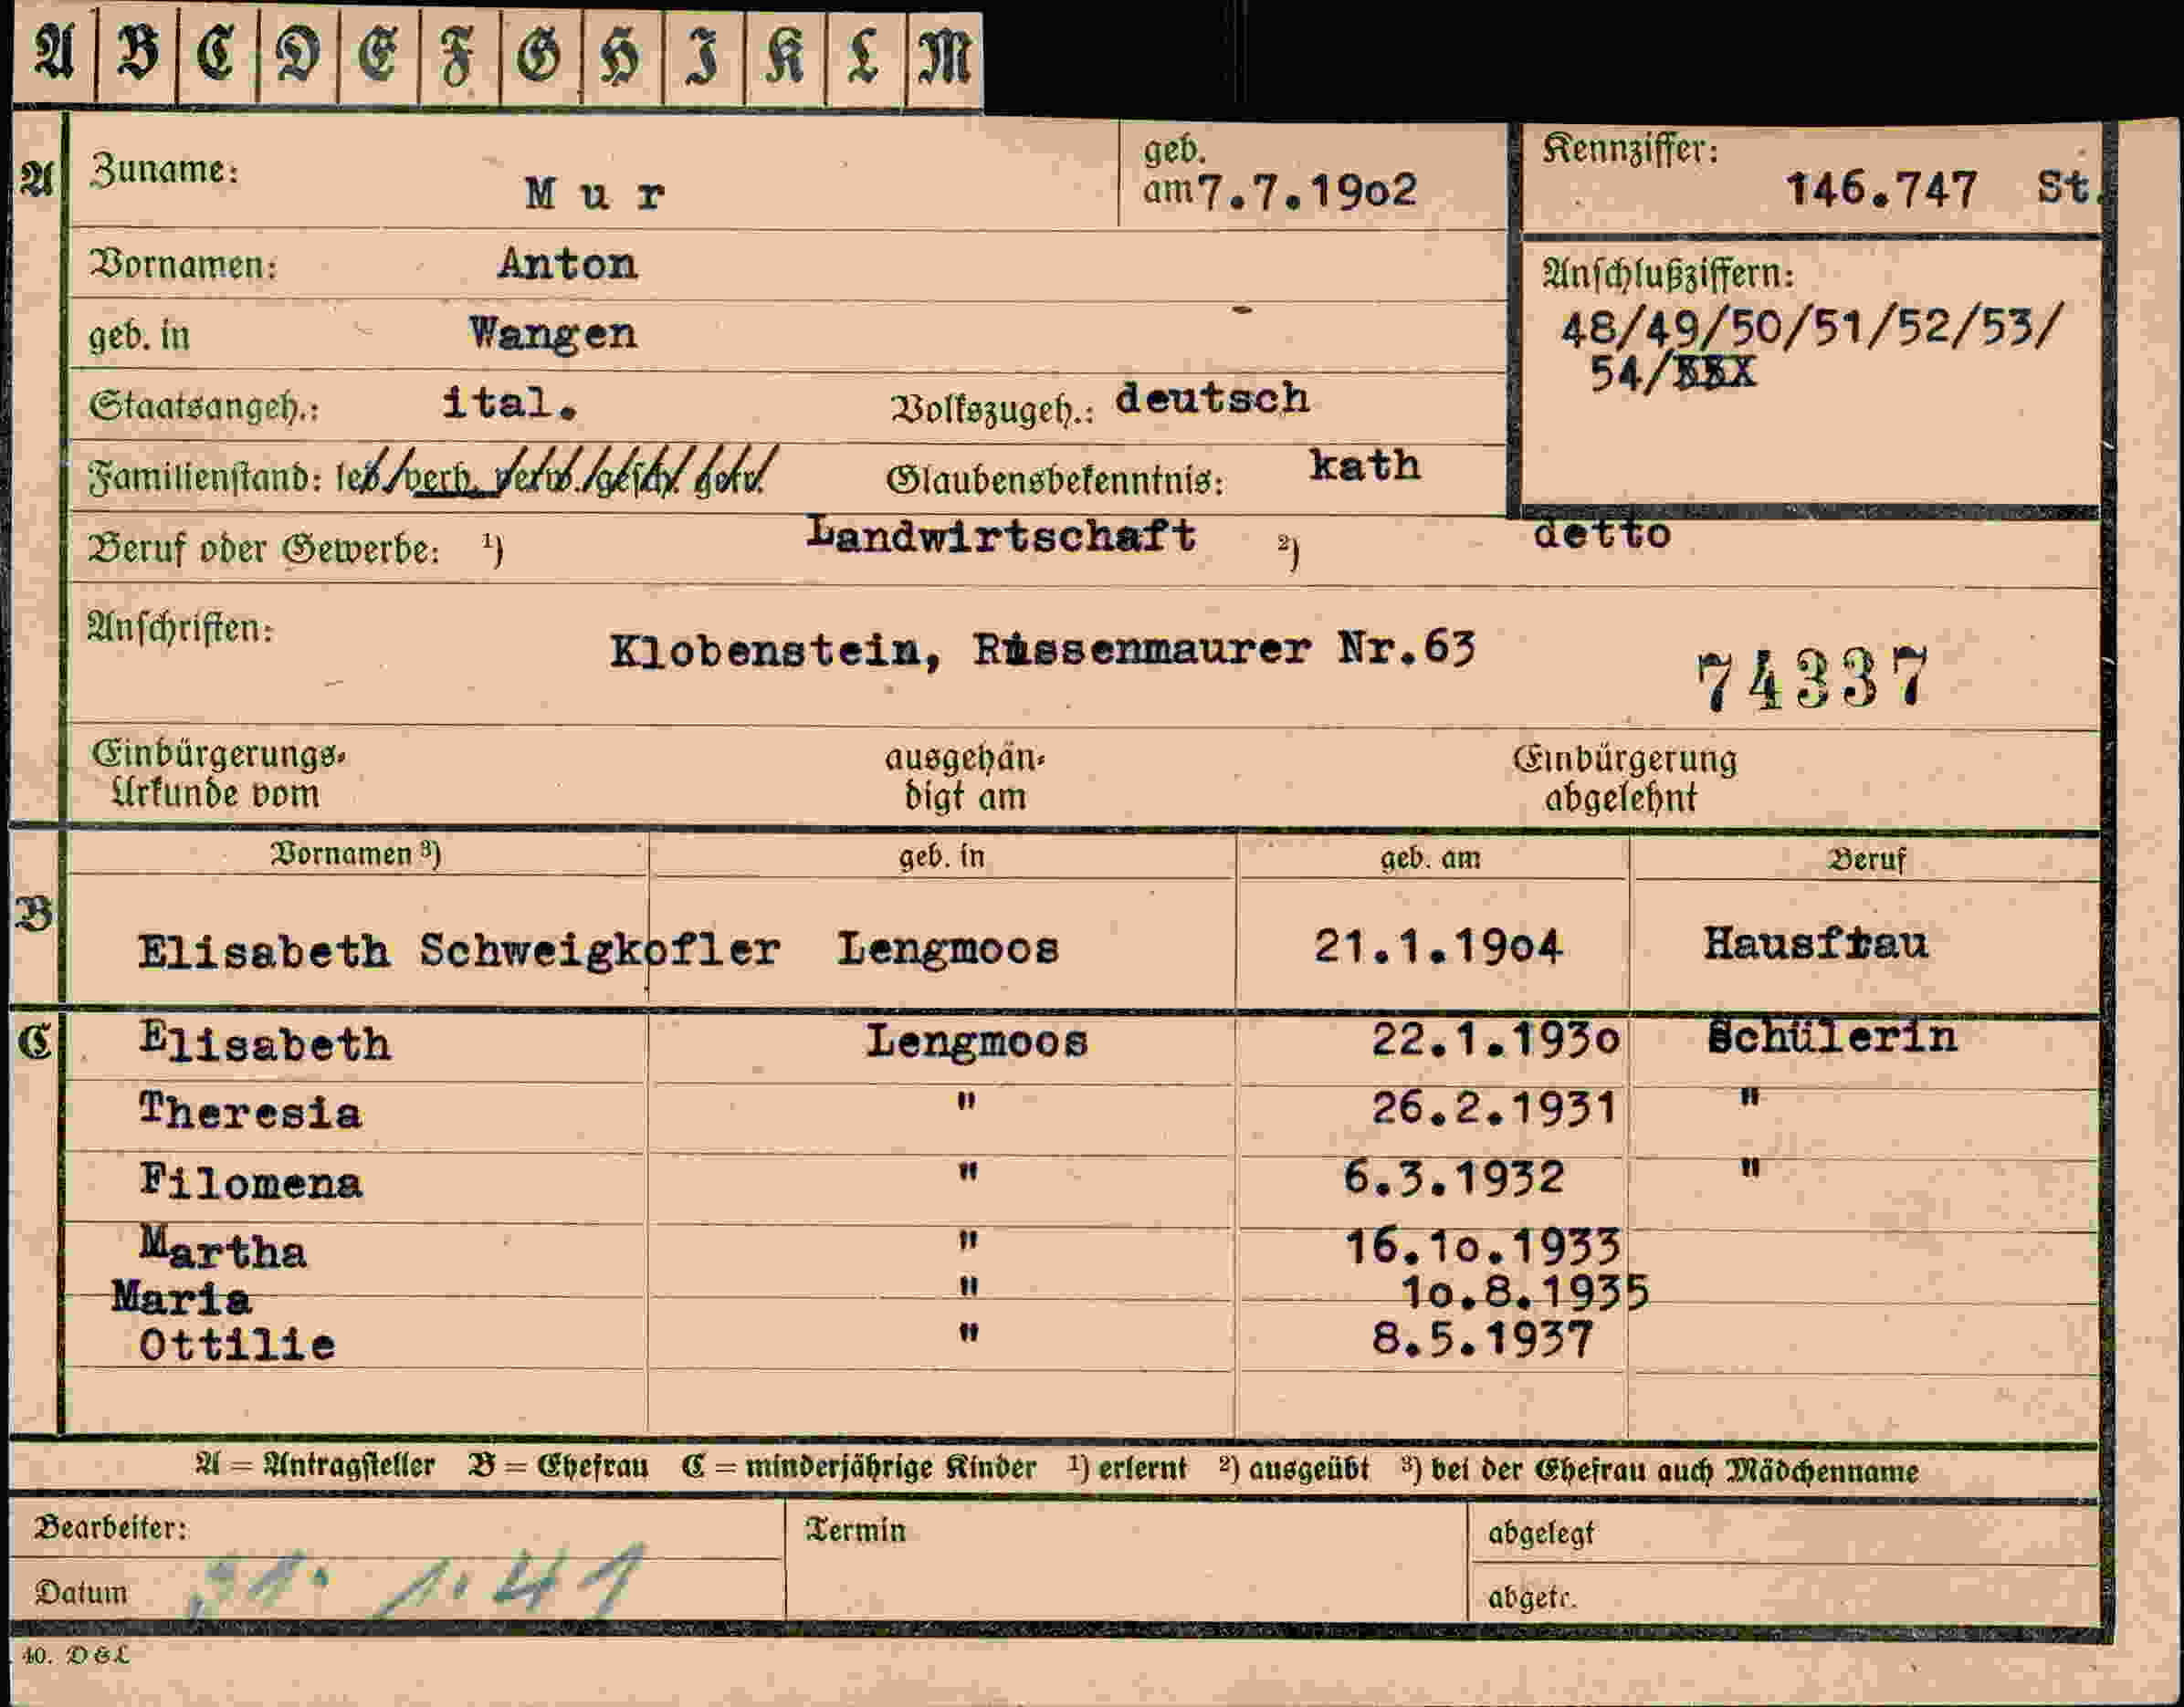 A B C D E F G H I K L M
A Zuname: Mur geb. am 7.7.19o2 Kennziffer: 146.747 St.
Vornamen: Anton
Anschlußziffern:
geb. in Wangen 48/49/50/51/52/53/
54/
Staatsangeh.: ital. Volkszugeh.: deutsch
Familienstand: led./verh. verw./gesch. getr. Glaubensbekenntnis: kath
Beruf oder Gewerbe: 1) Landwirtschaft 2) detto
Anschriften: Klobenstein, Rissenmaurer Nr.63 74337
Einbürgerungs- ausgehän- Einbürgerung
Urkunde vom digt am abgelehnt
Vornamen 3) geb. in geb. am Beruf
B Elisabeth Schweigkofler Lengmoos 21.1.19o4 Hausfrau
C Elisabeth Lengmoos 22.1.193o Schülerin
Theresia " 26.2.1931 "
Filomena " 6.3.1932 "
Martha " 16.1o.1933
Maria " 1o.8.1935
Ottilie " 8.5.1937
A = Antragsteller B = Ehefrau C = minderjährige Kinder 1) erlernt 2) ausgeübt 3) bei der Ehefrau auch Mädchenname
Bearbeiter: Termin abgelegt
Datum 31. 1. 41 abgetr.
40. D & L